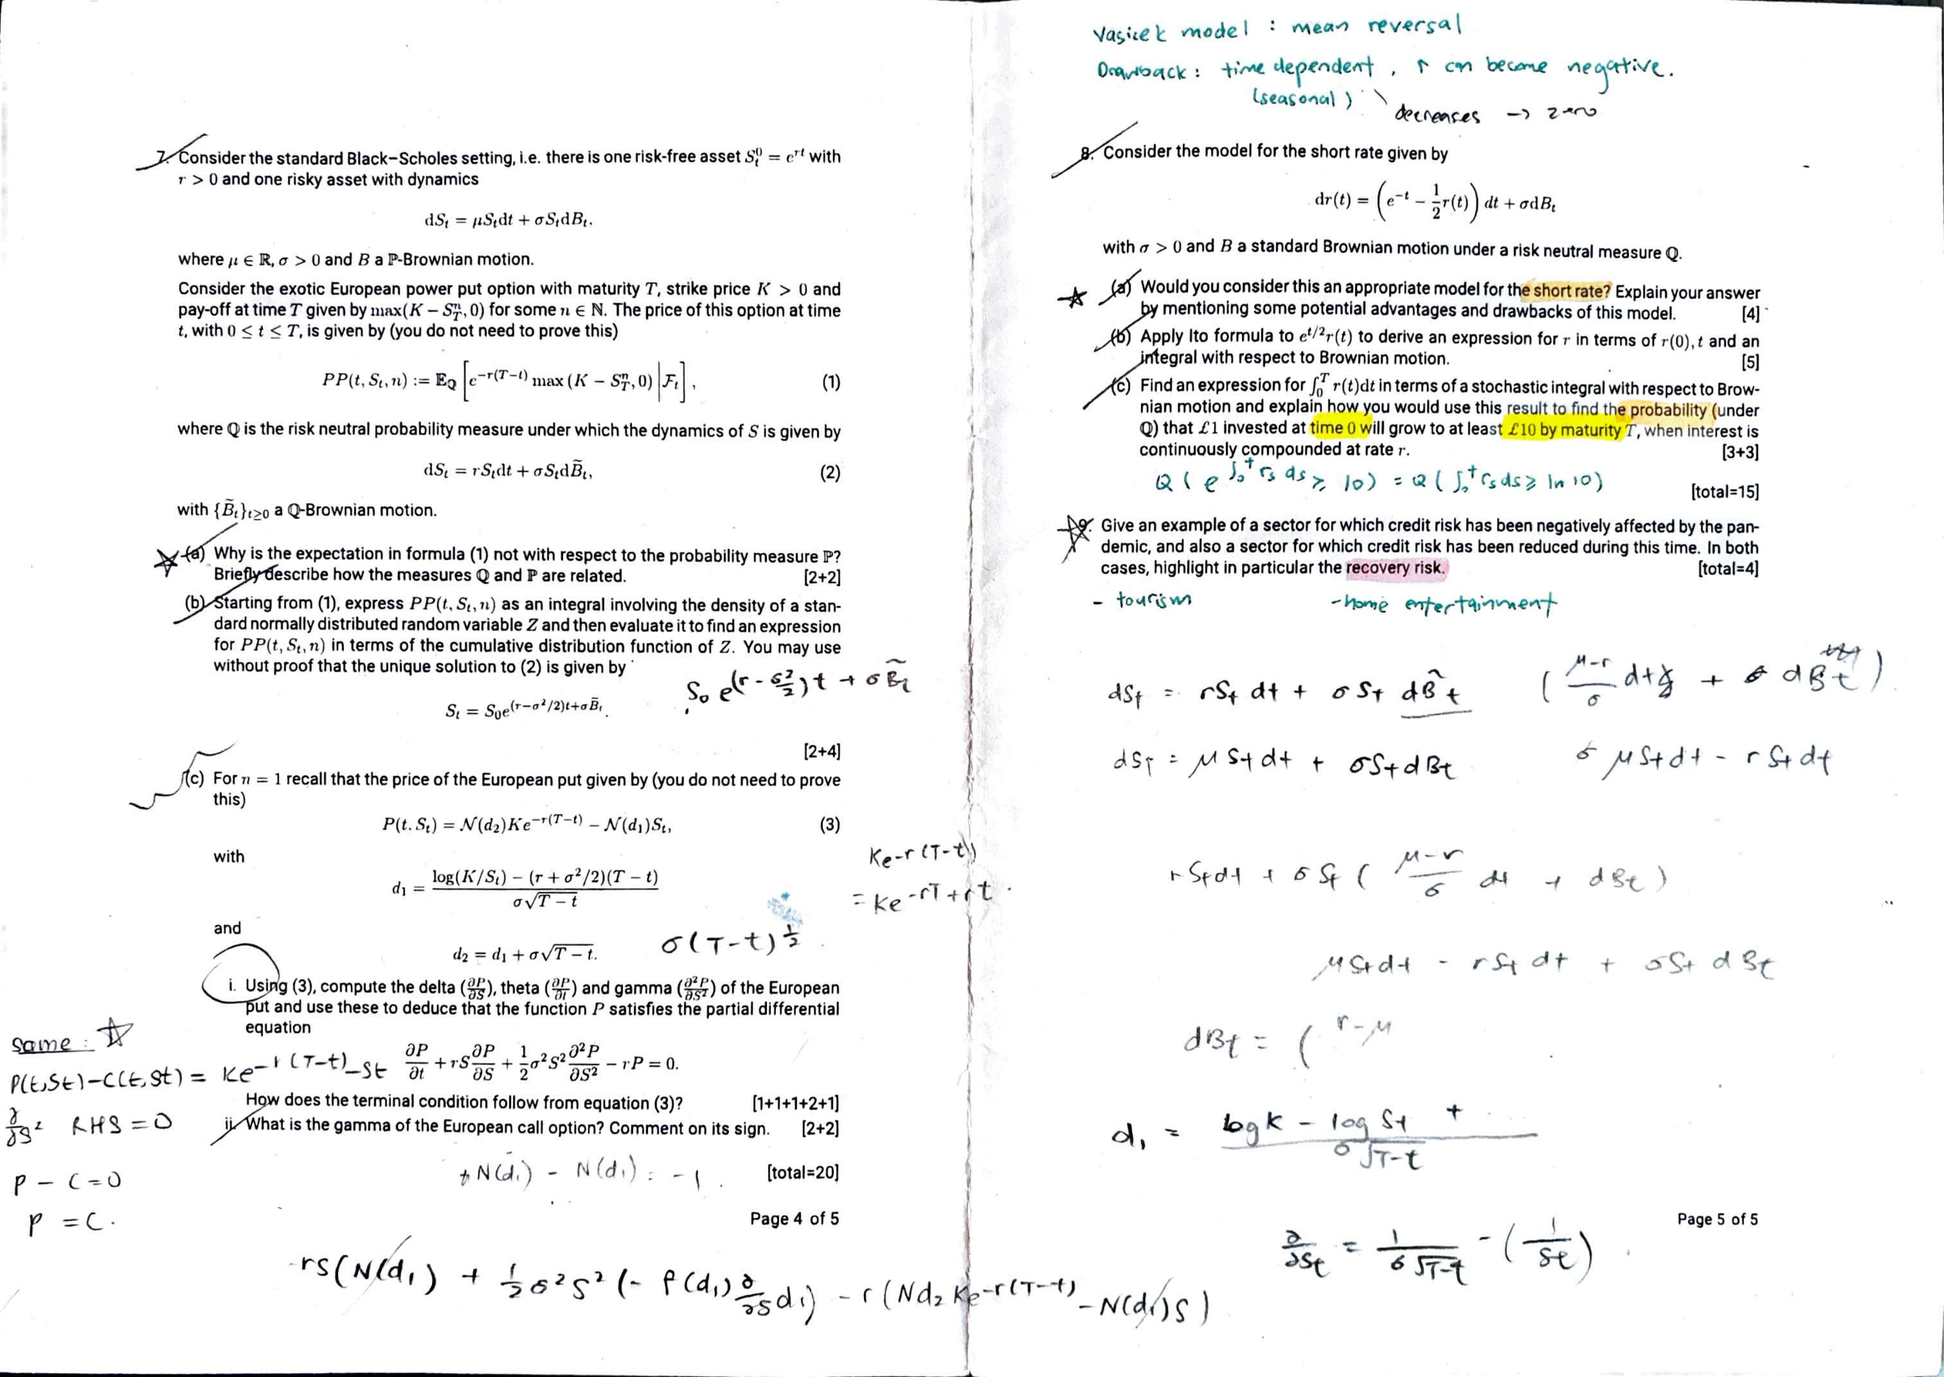 7. Consider the standard Black–Scholes setting, i.e. there is one risk-free asset S_t^0 = e^{rt} with
r > 0 and one risky asset with dynamics
dS_t = μS_t dt + σS_t dB_t,
where μ ∈ ℝ, σ > 0 and B a ℙ-Brownian motion.
Consider the exotic European power put option with maturity T, strike price K > 0 and
pay-off at time T given by max(K − S_T^n, 0) for some n ∈ ℕ. The price of this option at time
t, with 0 ≤ t ≤ T, is given by (you do not need to prove this)
PP(t, S_t, n) := 𝔼_ℚ [e^{−r(T−t)} max (K − S_T^n, 0) | ℱ_t], (1)
where ℚ is the risk neutral probability measure under which the dynamics of S is given by
dS_t = rS_t dt + σS_t dB̃_t, (2)
with {B̃_t}_{t≥0} a ℚ-Brownian motion.
(a) Why is the expectation in formula (1) not with respect to the probability measure ℙ?
Briefly describe how the measures ℚ and ℙ are related. [2+2]
(b) Starting from (1), express PP(t, S_t, n) as an integral involving the density of a stan-
dard normally distributed random variable Z and then evaluate it to find an expression
for PP(t, S_t, n) in terms of the cumulative distribution function of Z. You may use
without proof that the unique solution to (2) is given by
S_0 e^{(r − σ²/2)t + σB̃_t}
S_t = S_0 e^{(r−σ²/2)t+σB̃_t}.
[2+4]
(c) For n = 1 recall that the price of the European put given by (you do not need to prove
this)
P(t, S_t) = 𝒩(d_2)Ke^{−r(T−t)} − 𝒩(d_1)S_t, (3)
with
Ke^{-r(T-t)}
d_1 = (log(K/S_t) − (r + σ²/2)(T − t)) / (σ√(T − t))
= Ke^{-rT+rt}
and
d_2 = d_1 + σ√(T − t).
σ(T-t)^{1/2}
i. Using (3), compute the delta (∂P/∂S), theta (∂P/∂t) and gamma (∂²P/∂S²) of the European
put and use these to deduce that the function P satisfies the partial differential
equation
same : ☆
∂P/∂t + rS ∂P/∂S + 1/2 σ²S² ∂²P/∂S² − rP = 0.
P(t,St) - C(t,St) = Ke^{-r(T-t)} - St
How does the terminal condition follow from equation (3)? [1+1+1+2+1]
∂/∂S² RHS = 0
ii. What is the gamma of the European call option? Comment on its sign. [2+2]
+N(d_1) - N(d_1) = -1.
[total=20]
P - C = 0
P = C.
Page 4 of 5
rS(N(d_1) + 1/2 σ²S² (- f(d_1) ∂/∂S d_1) - r(Nd_2 Ke^{-r(T-t)} - N(d_1)S)
Vasicek model : mean reversal
Drawback : time dependent, r can become negative.
(seasonal) decreases → zero
8. Consider the model for the short rate given by
dr(t) = (e^{−t} − 1/2 r(t)) dt + σdB_t
with σ > 0 and B a standard Brownian motion under a risk neutral measure ℚ.
(a) Would you consider this an appropriate model for the short rate? Explain your answer
by mentioning some potential advantages and drawbacks of this model. [4]
(b) Apply Ito formula to e^{t/2}r(t) to derive an expression for r in terms of r(0), t and an
integral with respect to Brownian motion. [5]
(c) Find an expression for ∫_0^T r(t)dt in terms of a stochastic integral with respect to Brow-
nian motion and explain how you would use this result to find the probability (under
ℚ) that £1 invested at time 0 will grow to at least £10 by maturity T, when interest is
continuously compounded at rate r. [3+3]
Q(e^{∫_0^t r_s ds} ≥ 10) = Q(∫_0^t r_s ds ≥ ln 10)
[total=15]
9. Give an example of a sector for which credit risk has been negatively affected by the pan-
demic, and also a sector for which credit risk has been reduced during this time. In both
cases, highlight in particular the recovery risk. [total=4]
- tourism - home entertainment
dS_t = rS_t dt + σS_t dB̂_t
dS_t = μS_t dt + σS_t dB_t σ μS_t dt - rS_t dt
rS_t dt + σS_t ( (μ-r)/σ dt + dB_t )
μS_t dt - rS_t dt + σS_t dB_t
dB_t = ( r-μ
d_1 = (log K - log S_t +) / (σ√(T-t))
∂/∂S_t = 1/(σ√(T-t)) - (1/S_t)
Page 5 of 5